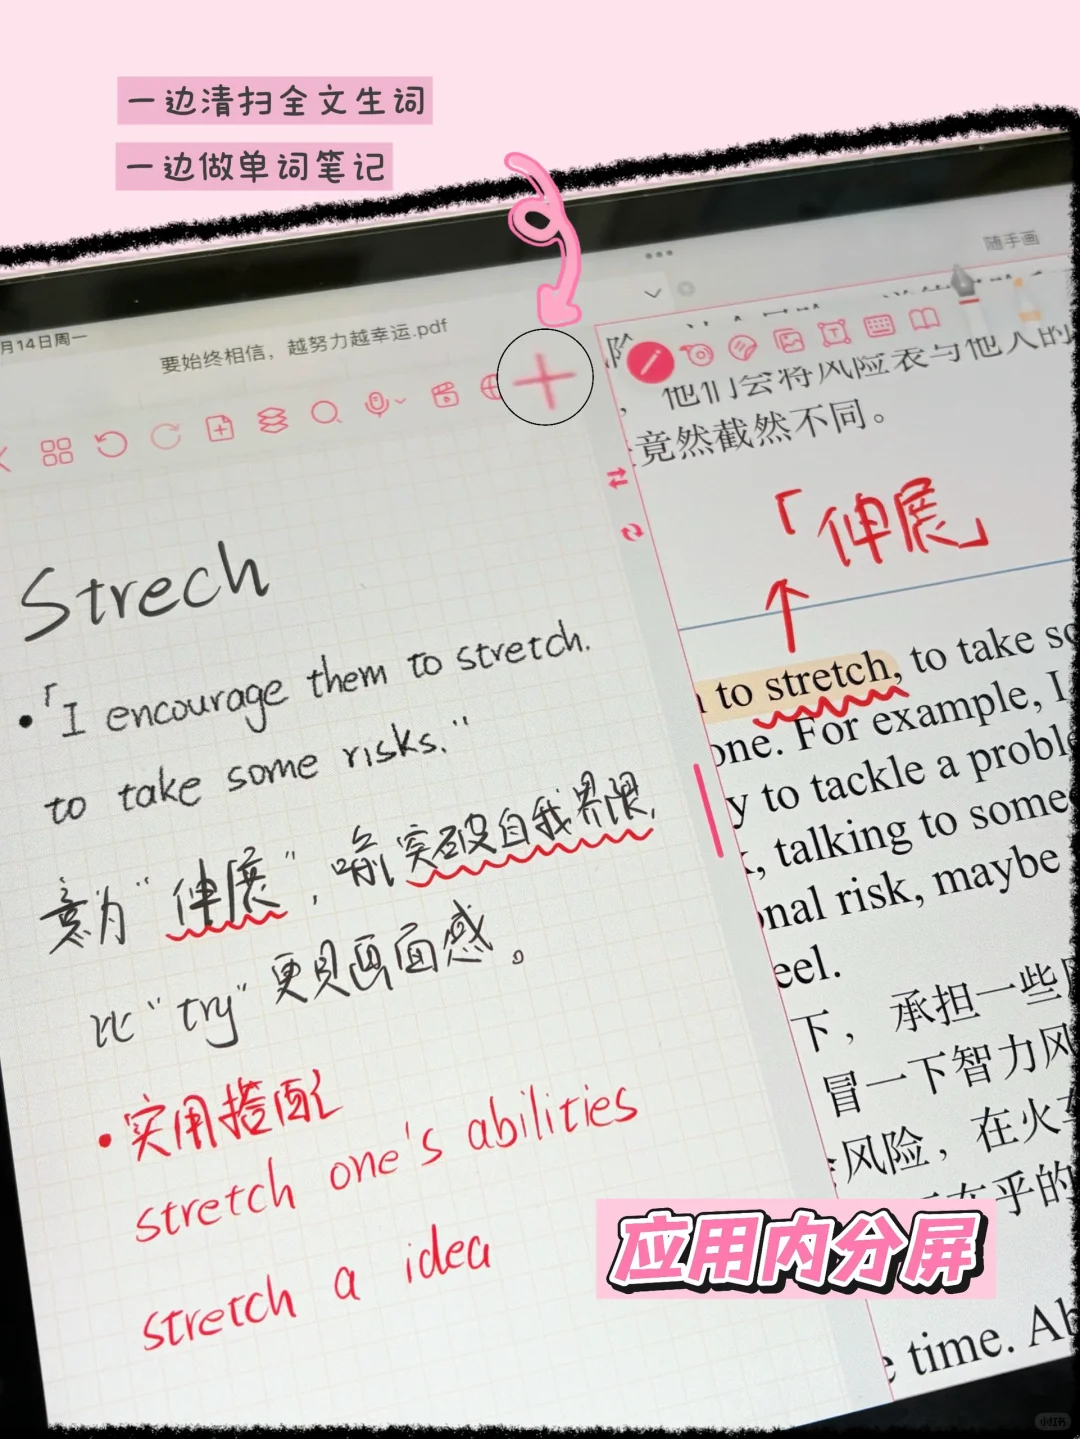 一边清扫全文生词
一边做单词笔记
月14日周一
要始终相信，越努力越幸运.pdf
随手画
险
，他们会将风险表与他人的
竟然截然不同。
「伸展」
Strech
•「I encourage them to stretch.
to take some risks."
意为"伸展"，喻突破自我界限，
比"try"更具画面感。
•实用搭配
stretch one's abilities
stretch a idea
to stretch, to take
one. For example, I
y to tackle a proble
, talking to some
onal risk, maybe
eel.
下，承担一些
冒一下智力风
风险，在火车
在乎的
time. Ab
应用内分屏
小红书